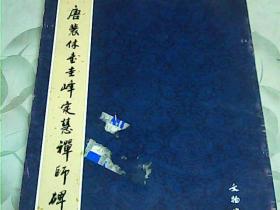 唐裴休书圭峰定慧禅师碑
文物